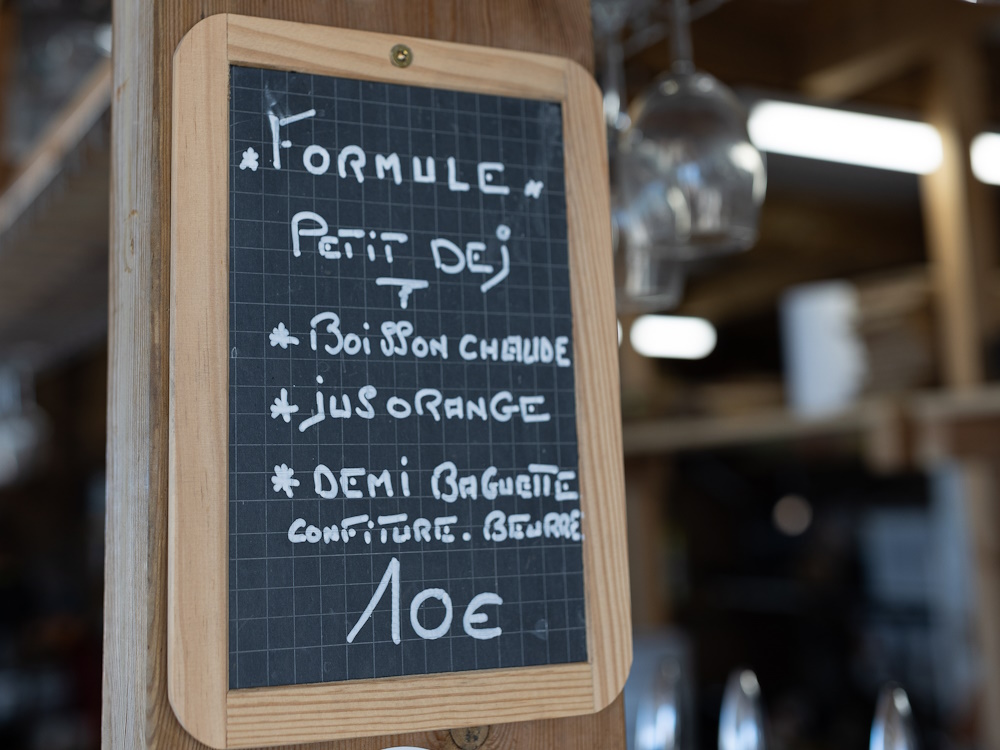 * FORMULE "
PETIT DEj
* BOiSSON CHAUDE
* jus ORANGE
* DEMi BAGUETTE
CONFiTURE. BEURRE
10€